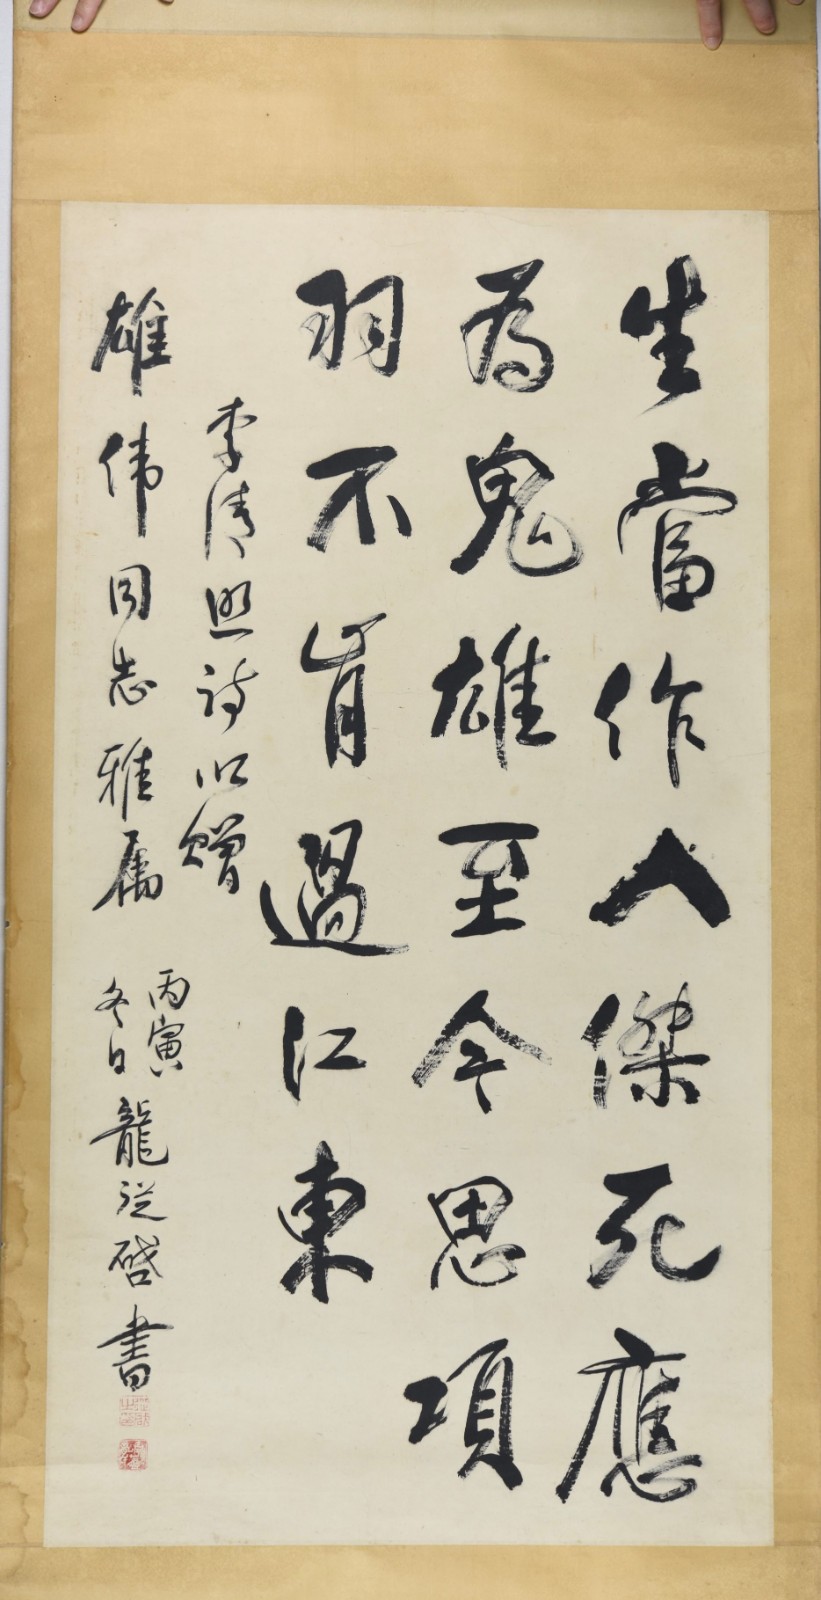 生當作人傑死應
為鬼雄至今思項
羽不肯過江東
李清照詩以贈
雄伟同志雅属
丙寅
冬日龍從啓書